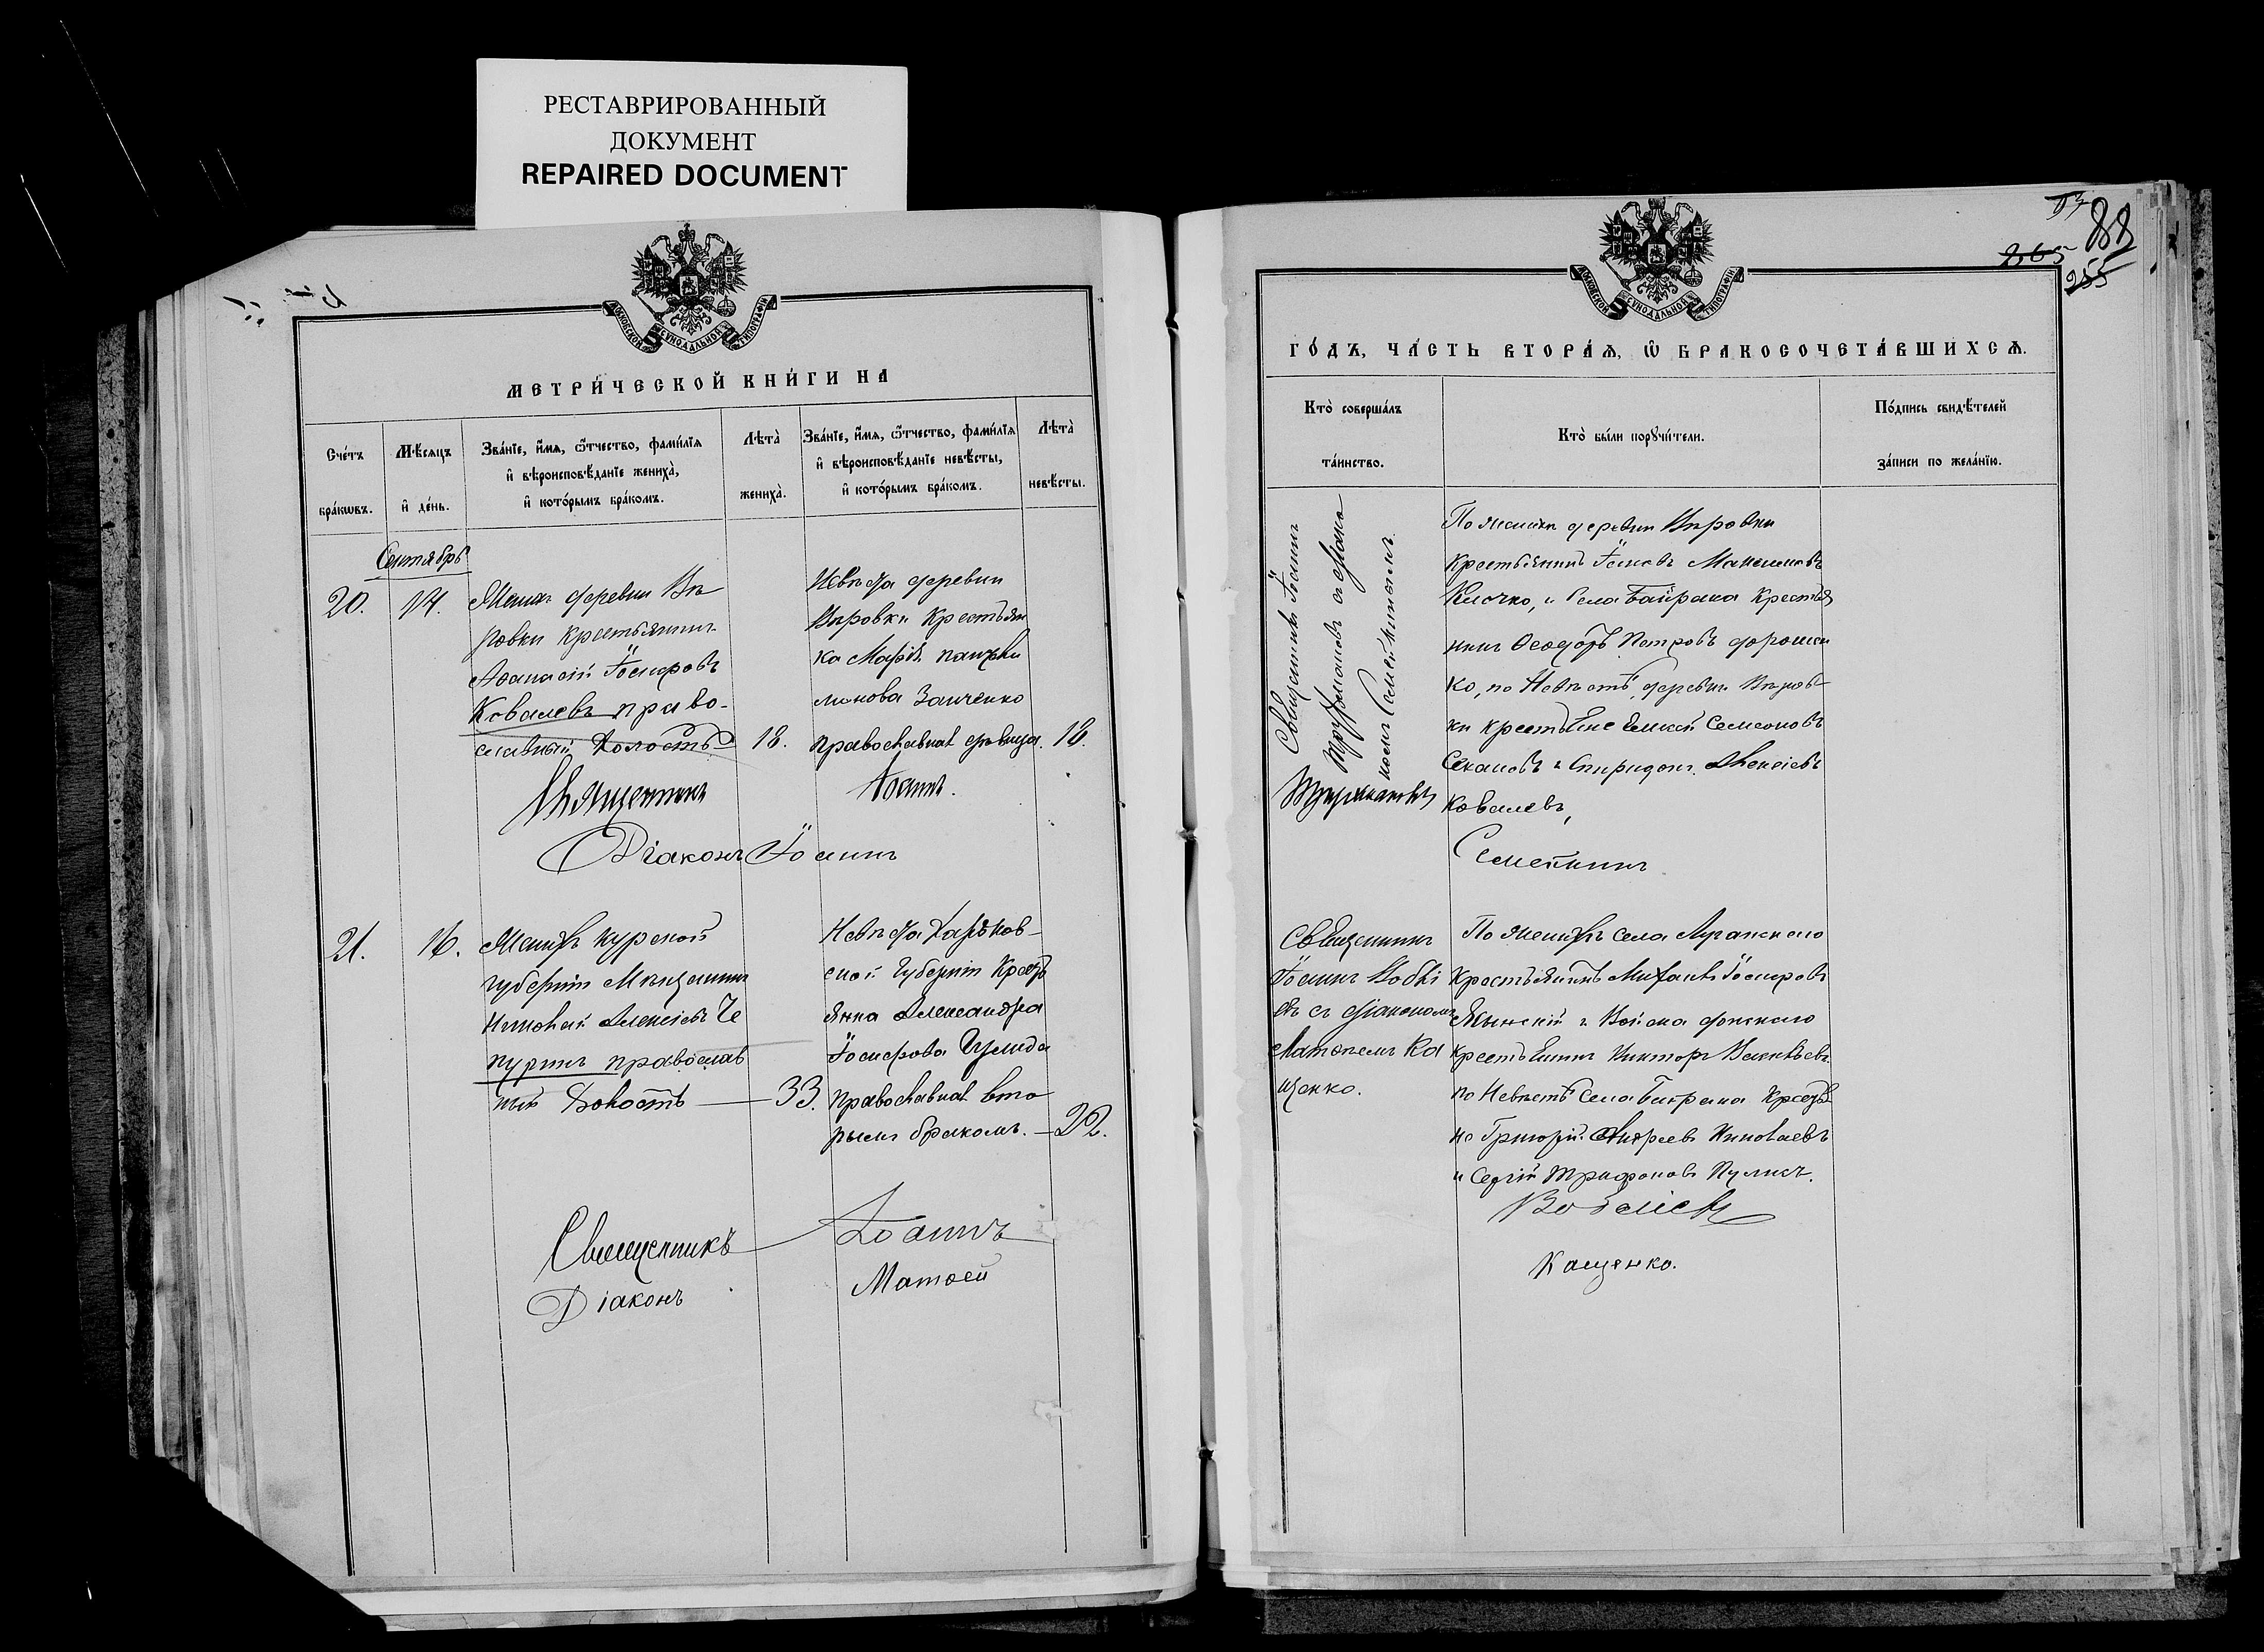 РЕСТАВРИРОВАННЫЙ
ДОКУМЕНТ
REPAIRED DOCUMENT
МОСКОВСКОЙ СУНОДАЛЬНОЙ ТИПОГРАФІИ
МЕТРИ́ЧЕСКОЙ КНИ́ГИ НА
Сче́тъ бра́кѡвъ.
Мѣ́сяцъ и҆ де́нь.
Зва́нїе, и҆́мѧ, ѻ҆́тчество, фами́лїѧ
и҆ вѣроисповѣ́данїе жениха̀,
и҆ кото́рымъ бра́комъ.
Лѣта̀ жениха̀.
Зва́нїе, и҆́мѧ, ѻ҆́тчество, фами́лїѧ
и҆ вѣроисповѣ́данїе невѣ́сты,
и҆ кото́рымъ бра́комъ.
Лѣта̀ невѣ́сты.
Сентябрь
20.
14.
Женихъ деревни Вѣ
ровки крестьянинъ
Аѳанасій Іосифовъ
Ковалевъ право-
славный холостъ
18.
Невѣста деревни
Вѣровки Крестьян
ка Марія
Заиченко
православная дѣвица.
18.
Священникъ Іоаннъ.
Діаконъ Іоаннъ
21.
16.
Женихъ Курской
губерніи Мѣщанинъ
Николай Алексіевъ Че
пуринъ православ
ный вдовъ
33.
Невѣста Харьков-
ской Губерніи Крест
янка Александра
Іосифова
православная вто
рымъ бракомъ.
22.
Священникъ Іоаннъ
Діаконъ Матѳей
88
265
255
ГО́ДЪ, ЧА́СТЬ ВТОРА́Ѧ, Ѽ БРАКОСОЧЕТА́ВШИХСѦ.
Кто̀ соверша́лъ
та́инство.
Кто̀ бы́ли порꙋчи́тели.
По́дпись свидѣ́телей
за́писи по жела́нїю.
Священникъ Іоаннъ
Труфмановъ с Діако
номъ Семейкинымъ.
По женихѣ деревни Вѣровки
крестьянинъ Іаковъ Максимовъ
Клочко, и Села Байрака Крестья
нинъ Ѳеодоръ Петровъ Дорошен
ко, по Невѣстѣ деревни Вѣров-
ки крестьяне Емелiй Семеоновъ
Секановъ и Спиридонъ Алексіевъ
Ковалевъ,
Семейкинъ
Священникъ
Іоаннъ
съ діакономъ
Матѳеемъ Ка
щенко.
По женихѣ села Луганскаго
Крестьянинъ Михаилъ Іосифовъ
и Войска донскаго
крестьянинъ Викторъ
по Невѣстѣ Села Байрака Крестья
не Григорій Андреевъ Николаевъ
и Сергій Трифоновъ
Кащенко.